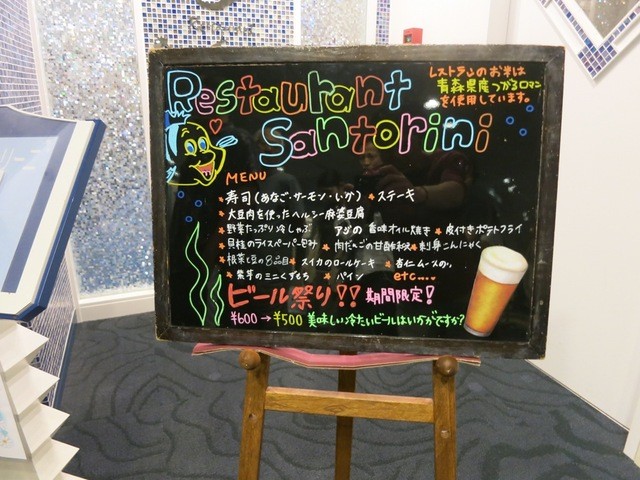 Restaurant
Santorini
レストランのお米は
青森県産つがるロマン
を使用しています。
MENU
★寿司(あなご・サーモン・いか) ★ステーキ
★大豆肉を使ったヘルシー麻婆豆腐
★野菜たっぷり冷しゃぶ アジの香味オイル焼き ★皮付きポテトフライ
★貝柱のライスペーパー包み ★肉だんごの甘酢 ★刺身こんにゃく
★根菜と豆の8品目 ★スイカのロールケーキ ★杏仁ムース
★紫芋のミニくずもち ★パイン etc....
ビール祭り!! 期間限定!
¥600→¥500 美味しい冷たいビールはいかがですか?